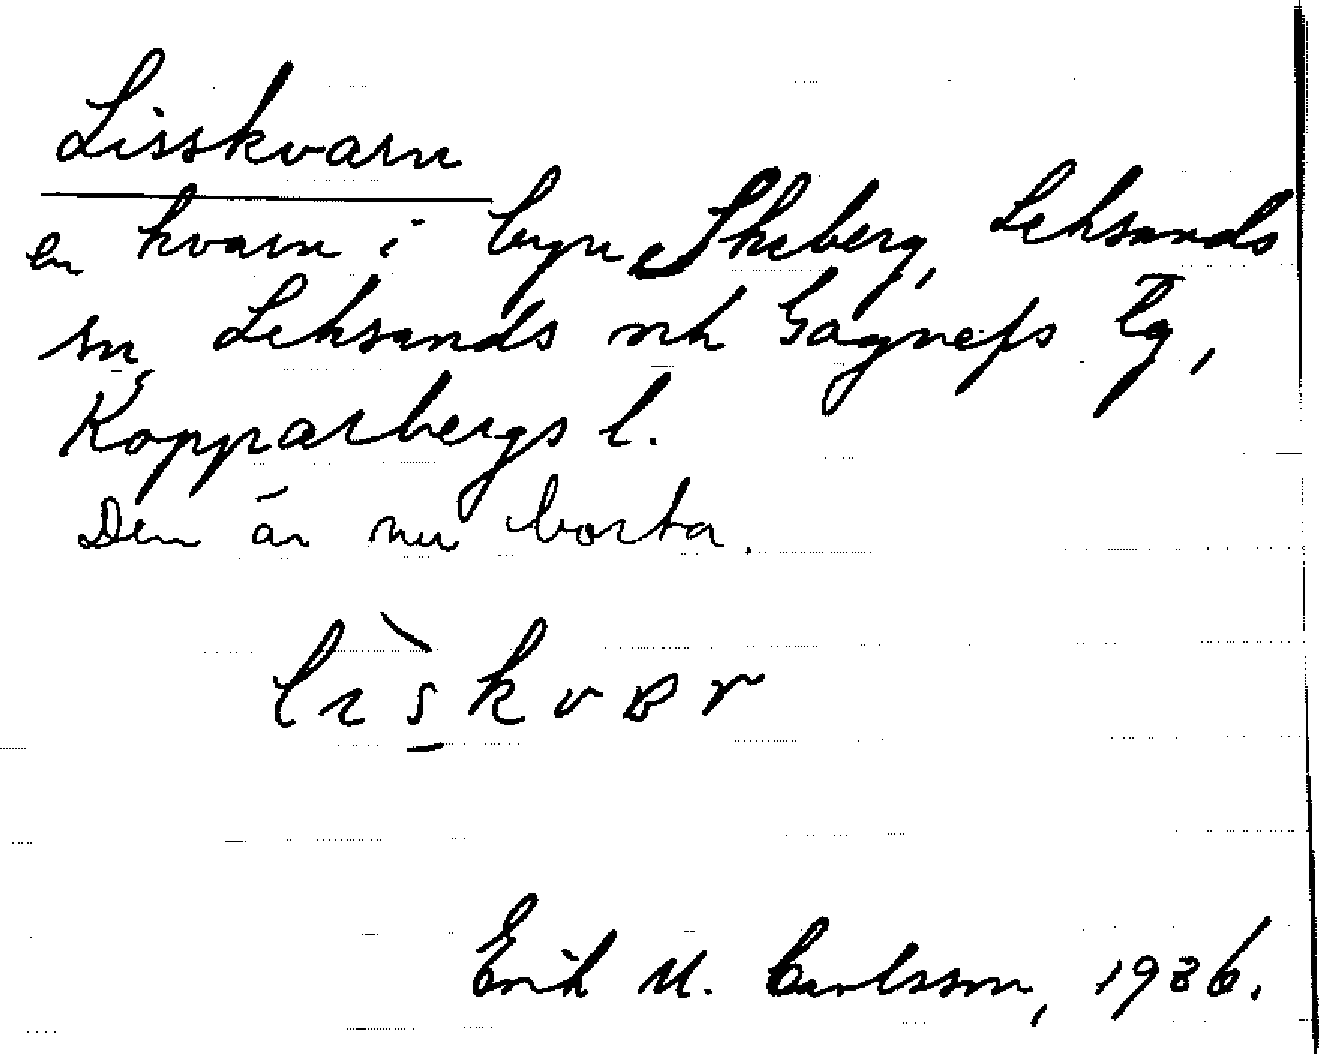 Lisskvarn
en kvarn i byn Skeberg, Leksands
sn, Leksands och Gagnefs tg,
Kopparbergs l.
Den är nu borta.
Erik M. Carlsson, 1936.